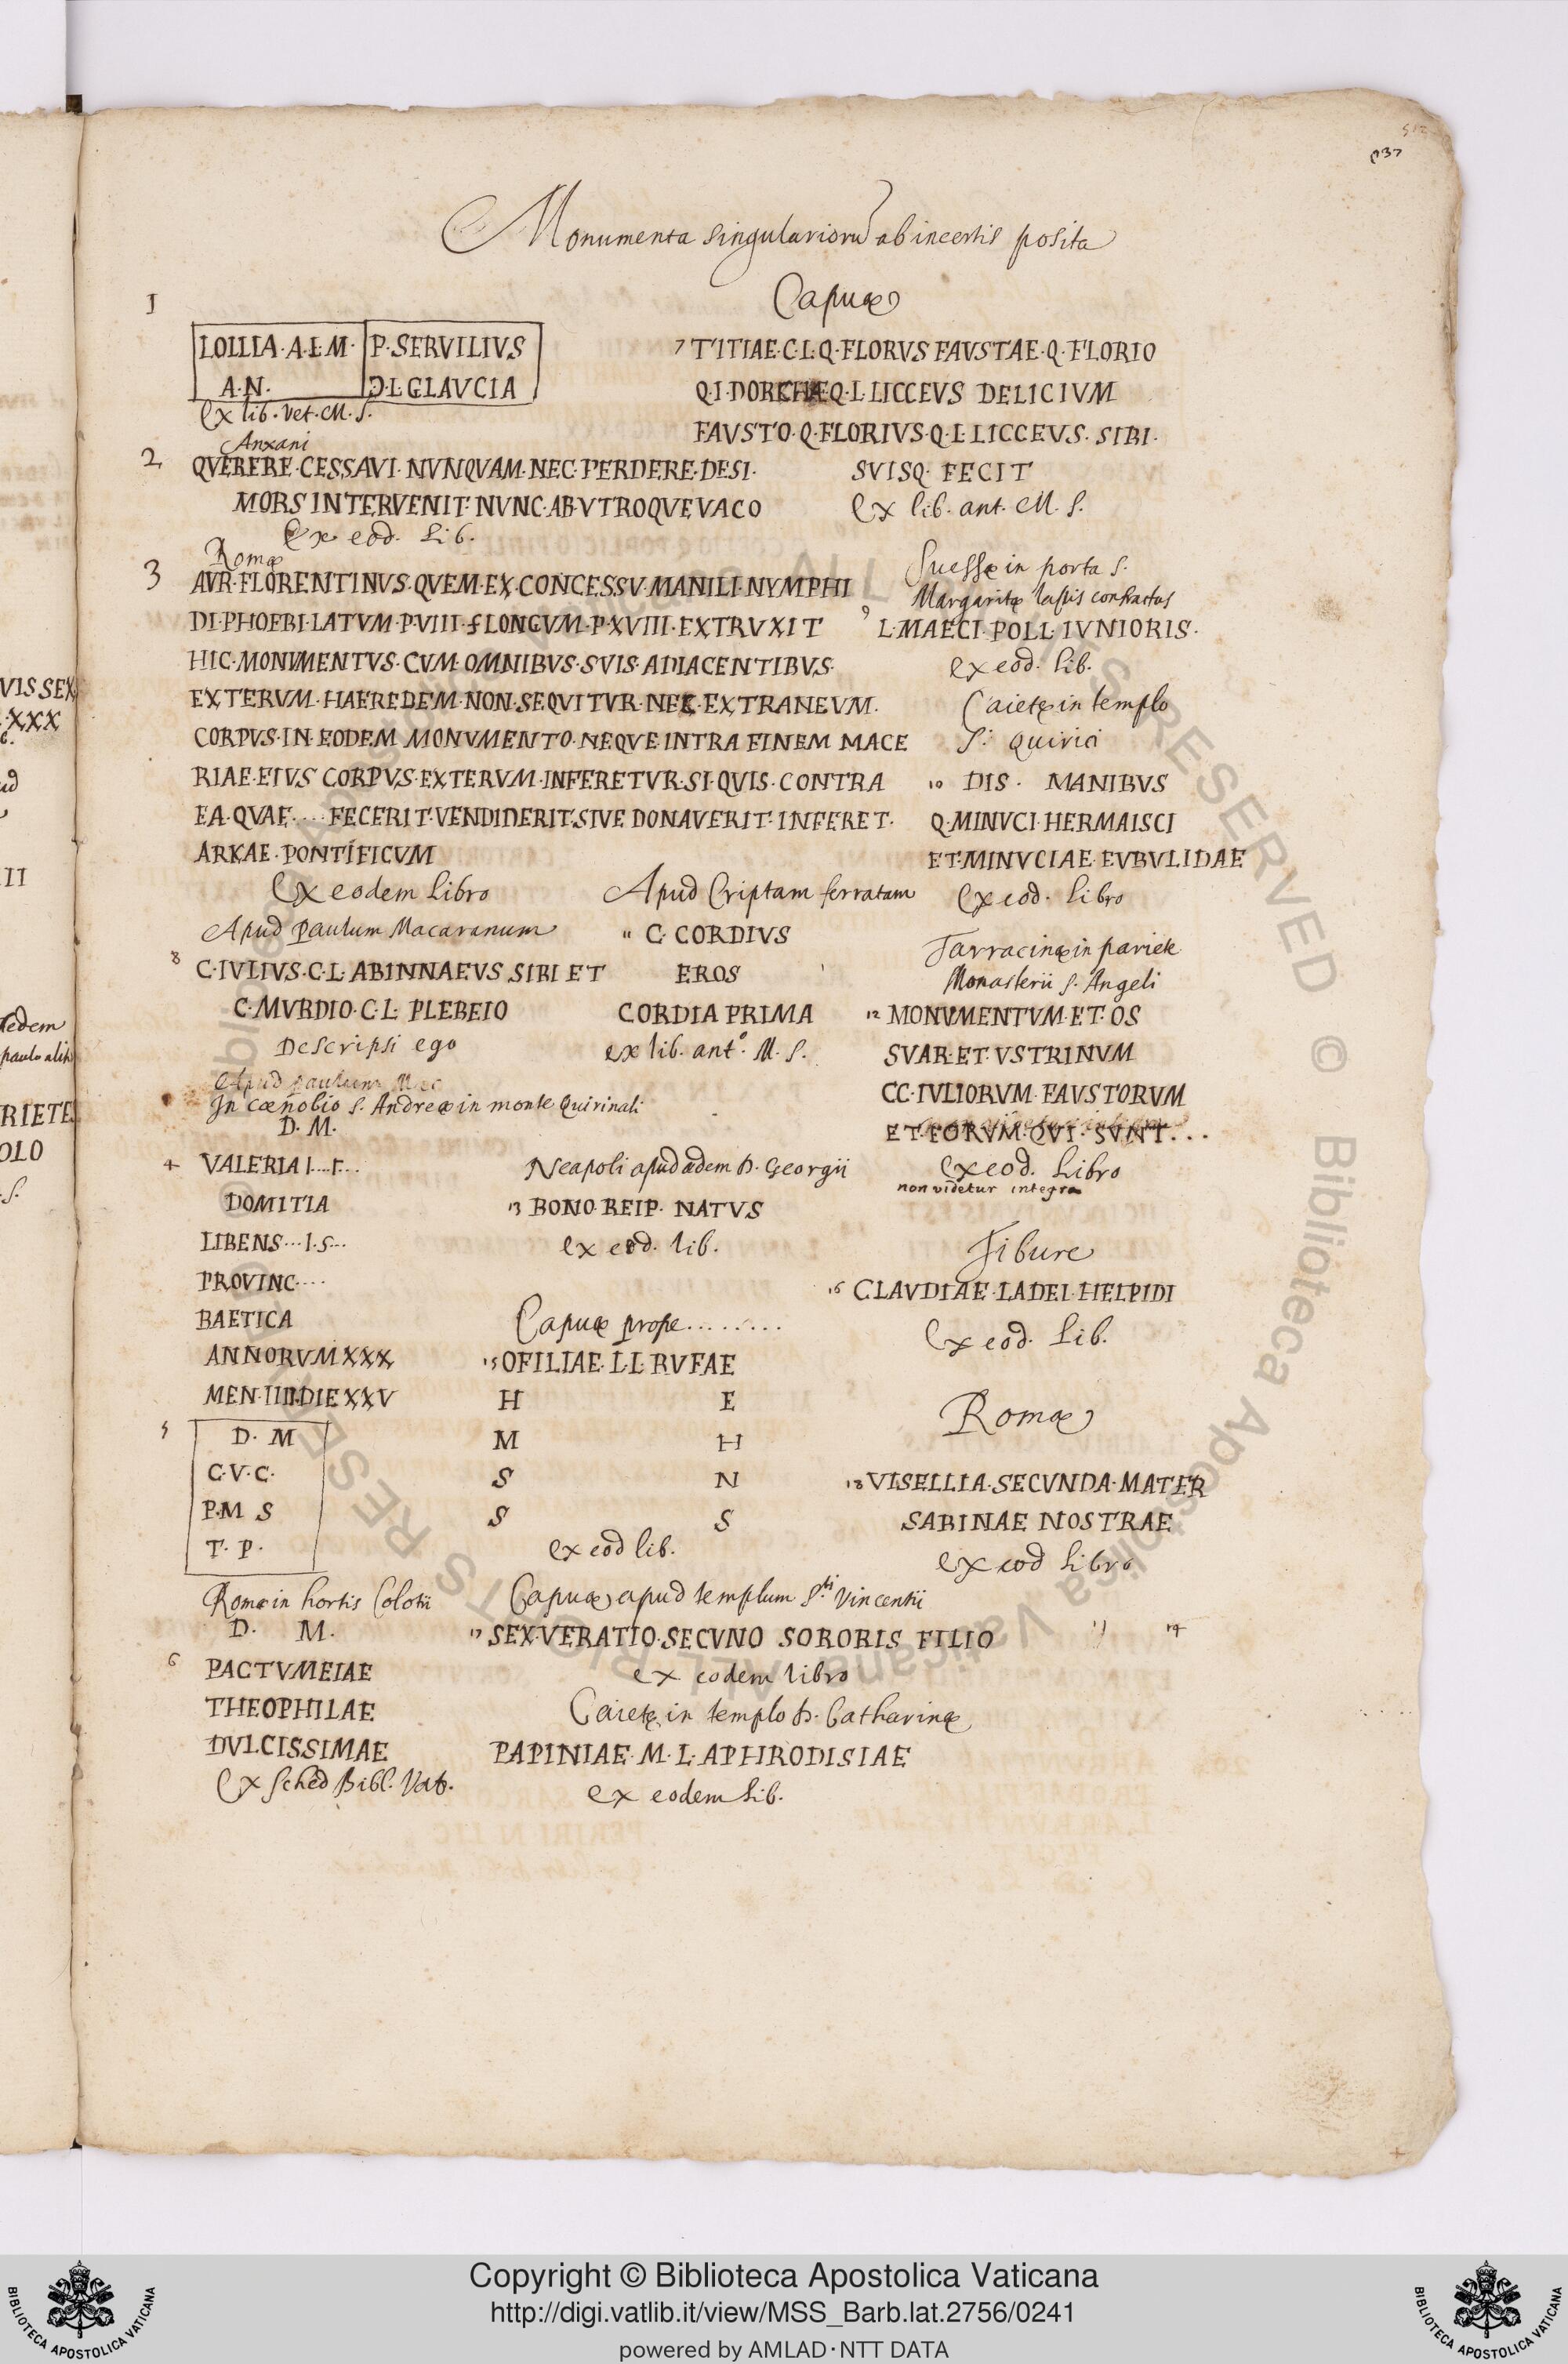 Monumenta singulariorũ ab incertis posita
1
LOLLIA·A·L·M·
A·N·
P·SERVILIVS
Ɔ·L·GLAVCIA
Ex lib. vet. M. S.
Anxani
2 QVERERE·CESSAVI·NVNQVAM·NEC·PERDERE·DESI·
MORS INTERVENIT·NVNC·AB·VTROQVE VACO
Ex eod. Lib.
Romæ
3 AVR·FLORENTINVS·QVEM·EX·CONCESSV·MANILI·NYMPHI
DI·PHOEBI·LATVM·P·VIII·LONGVM·P·XVIII·EXTRVXIT
HIC·MONVMENTVS·CVM·OMNIBVS·SVIS·ADIACENTIBVS·
EXTERVM·HAEREDEM·NON·SEQVITVR·NEC·EXTRANEVM·
CORPVS·IN·EODEM MONVMENTO·NEQVE INTRA FINEM MACE
RIAE·EIVS CORPVS·EXTERVM·INFERETVR·SI·QVIS·CONTRA
EA·QVAE....FECERIT·VENDIDERIT·SIVE DONAVERIT·INFERET·
ARKAE·PONTIFICVM
Ex eodem Libro
Apud Paulum Macaranum
8 C·IVLIVS·C·L·ABINNAEVS SIBI ET
C·MVRDIO·C·L· PLEBEIO
Descripsi ego
Apud paulum Mac
In cœnobio S. Andreæ in monte Quirinali
D. M.
4 VALERIA I....r...
DOMITIA
LIBENS...I.S...
PROVINC....
BAETICA
ANNORVM XXX
MEN·IIII·DIE XXV
5 D· M
C·V·C·
P·M S
T· P·
Romæ in hortis Colotii
D. M.
6 PACTVMEIAE
THEOPHILAE
DVLCISSIMAE
Ex Sched Bibl. Vat.
Capuæ
7 TITIAE·C·L·Q·FLORVS FAVSTAE·Q·FLORIO
Q·L·DORCHAE Q·L·LICCEVS DELICIVM
FAVSTO·Q·FLORIVS·Q·L·LICCEVS·SIBI·
SVISQ· FECIT
Ex lib. ant. M. S.
Suessæ in porta S.
Margaritæ lapis confractus
9 L·MAECI·POLL·IVNIORIS·
ex eod. lib.
Caietæ in templo
S. Quirici
10 DIS· MANIBVS
Q·MINVCI·HERMAISCI
ET·MINVCIAE·EVBVLIDAE
Ex eod. Libro
Apud Criptam ferratam
11 C· CORDIVS
EROS
CORDIA PRIMA
ex lib. ant.º M. S.
Tarracinæ in pariete
Monasterii S. Angeli
12 MONVMENTVM·ET·OS
SVAR·ET·VSTRINVM
CC·IVLIORVM·FAVSTORVM
ET·EORVM·QVI·SVNT...
Ex eod. Libro
non videtur integra
Neapoli apud ædem D. Georgii
13 BONO·REIP· NATVS
ex eod. lib.
Tibure
16 CLAVDIAE·LADEI·HELPIDI
Ex eod. Lib.
Capuæ prope........
15 OFILIAE·L·L·RVFAE
H E
M H
S N
S S
ex eod lib.
Romæ
18 VISELLIA·SECVNDA·MATER
SABINAE NOSTRAE
ex eod Libro
Capuæ apud templum S.ti Vincentii
17 SEX·VERATIO·SECVNO SORORIS FILIO
ex eodem libro
Caietæ in templo D. Catharinæ
PAPINIAE·M·L·APHRODISIAE
ex eodem Lib.
14
VIS SEX
·XXX
II
RIETE
OLO
Copyright © Biblioteca Apostolica Vaticana
http://digi.vatlib.it/view/MSS_Barb.lat.2756/0241
powered by AMLAD·NTT DATA
BIBLIOTECA APOSTOLICA VATICANA
BIBLIOTECA APOSTOLICA VATICANA